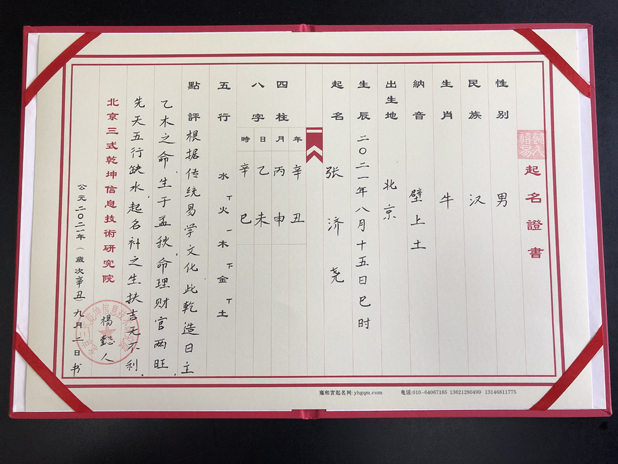 起名證書
性別 男
民族 汉
生肖 牛
納音 壁上土
出生地 北京
生辰 二〇二一年八月十五日巳时
起名 张济尧
四柱 年 月 日 時
八字 辛丑 丙申 乙未 辛巳
五行 水 火 木 金 土
點評 根据传统易学文化此乾造日主
乙木之命，生于孟秋，命理财官两旺，
先天五行缺水，起名补之生扶吉无不利
北京三式乾坤信息技術研究院
楊懿人
公元二〇二一年（歲次辛丑九月二日书
雍和宫起名网:yhgqm.com 电话:010-64067165 13621260499 13146811775